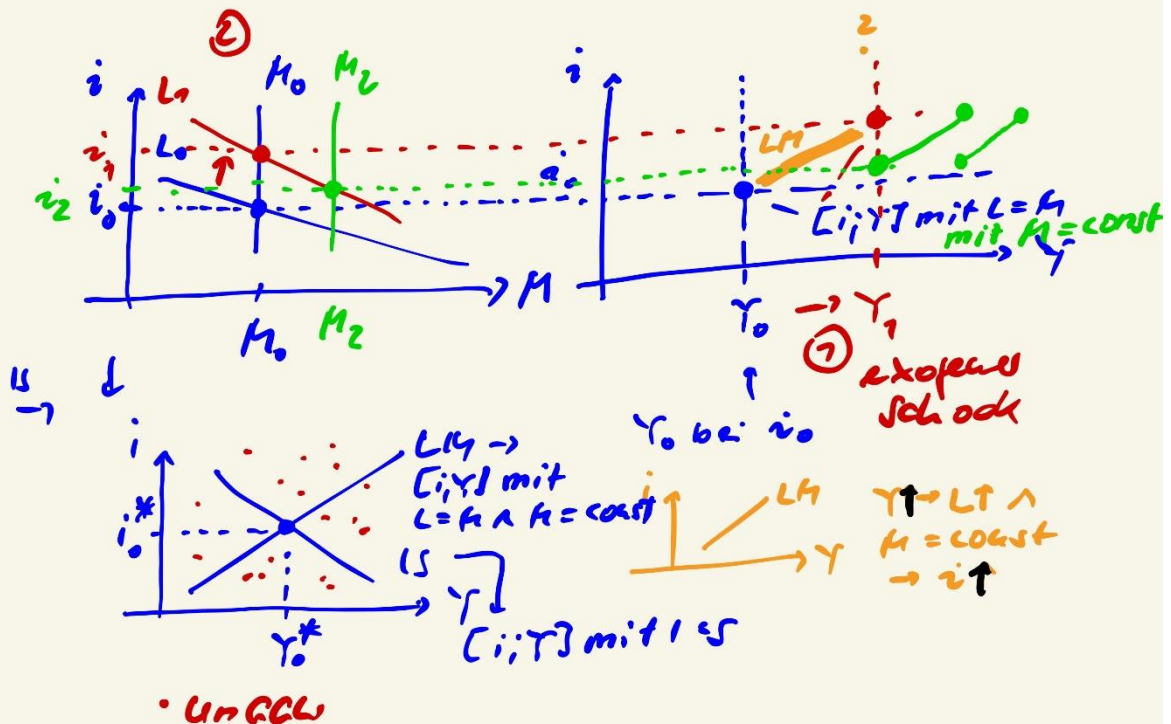 ②
i
L1
M0
M2
i1
L0
i2
i0
M
M0
M2
i
2
LM
[i,Y] mit L = M
mit M = const
Y
Y0 → Y1
①
exogener
Schock
↑
Y0 bei i0
IS
→
i
i0*
LM →
[i,Y] mit
L = M ∧ M = const
IS
Y
Y0*
[i,Y] mit I = S
i
LM
Y
Y↑ → L↑ ∧
M = const
→ i↑